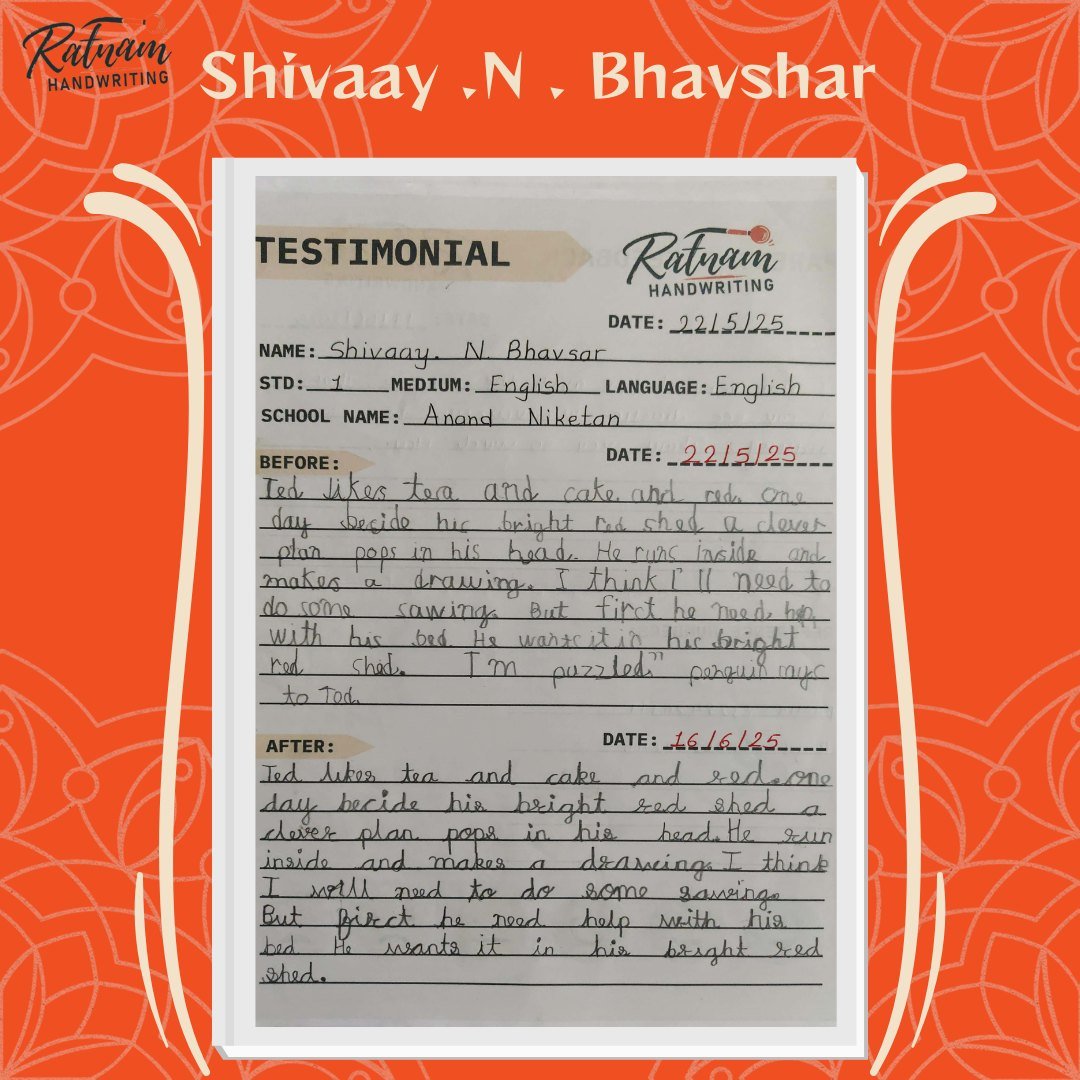 Ratnam
HANDWRITING
Shivaay .N . Bhavshar
TESTIMONIAL
Ratnam
HANDWRITING
DATE: 22/5/25
NAME: Shivaay. N. Bhavsar
STD: 1 MEDIUM: English LANGUAGE: English
SCHOOL NAME: Anand Niketan
BEFORE: DATE: 22/5/25
Ted likes tea and cake. and red. one
day becide hic bright red shed a clever
plan pops in his head. He runc incide and
makes a drawing. I think I'll need to
do some sawing. But firct he need
with his bed. He wants it in hic bright
red shed. I'm puzzled" penguin
to Ted.
AFTER: DATE: 16/6/25
Ted likes tea and cake and red. one
day becide his bright red shed a
clever plan pops in his head. He run
inside and makes a drawing. I think
I will need to do some sawing.
But firct he need help with his
bed He wants it in his bright red
shed.